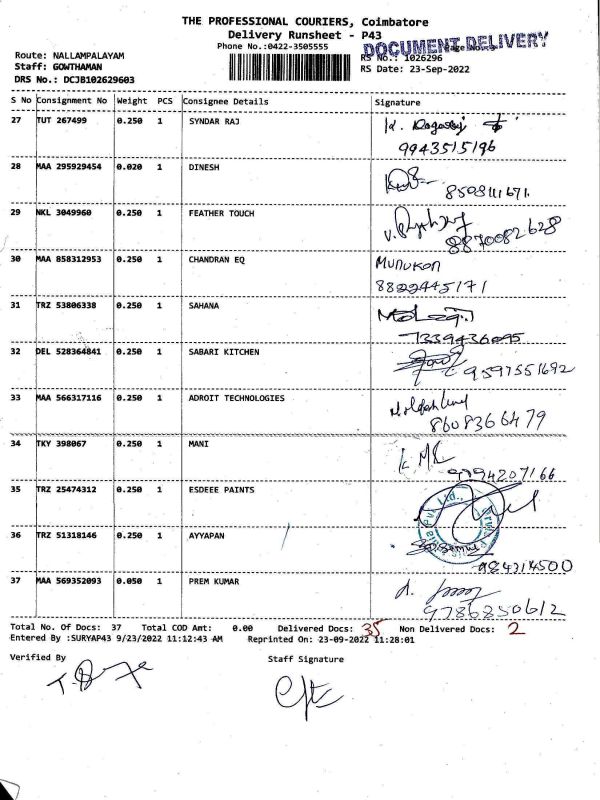 THE PROFESSIONAL COURIERS, Coimbatore
Delivery Runsheet - P43
Phone No.:0422-3505555
DOCUMENT DELIVERY
Route: NALLAMPALAYAM
Staff: GOWTHAMAN
RS No.: 1026296
DRS No.: DCJB102629603
RS Date: 23-Sep-2022
S No Consignment No Weight PCS Consignee Details Signature
27 TUT 267499 0.250 1 SYNDAR RAJ
9943515196
28 MAA 295929454 0.020 1 DINESH
8508111671.
29 NKL 3049960 0.250 1 FEATHER TOUCH
8870082628
30 MAA 858312953 0.250 1 CHANDRAN EQ Munukon
8822445171
31 TRZ 53806338 0.250 1 SAHANA
7339436095
32 DEL 528364841 0.250 1 SABARI KITCHEN
9597551692
33 MAA 566317116 0.250 1 ADROIT TECHNOLOGIES
8608366479
34 TKY 398067 0.250 1 MANI
9794207166
35 TRZ 25474312 0.250 1 ESDEEE PAINTS
36 TRZ 51318146 0.250 1 AYYAPAN
984314500
37 MAA 569352093 0.050 1 PREM KUMAR
9786250612
Total No. Of Docs: 37 Total COD Amt: 0.00 Delivered Docs: 35 Non Delivered Docs: 2
Entered By :SURYAP43 9/23/2022 11:12:43 AM Reprinted On: 23-09-2022 11:28:01
Verified By Staff Signature